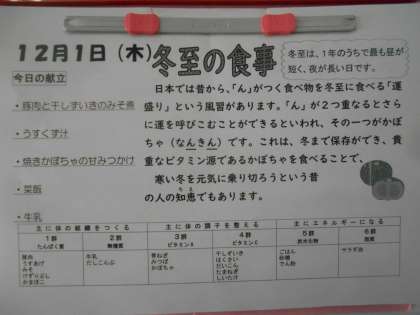 12月1日（木）冬至の食事
冬至は、1年のうちで最も昼が
短く、夜が長い日です。
今日の献立
・豚肉と干しずいきのみそ煮
・うすくず汁
・焼きかぼちゃの甘みつかけ
・菜飯
・牛乳
日本では昔から、「ん」がつく食べ物を冬至に食べる「運
盛り」という風習があります。「ん」が2つ重なるとさら
に運を呼びこむことができるといわれ、その一つがかぼ
ちゃ（なんきん）です。これは、冬まで保存ができ、貴
重なビタミン源であるかぼちゃを食べることで、
寒い冬を元気に乗り切ろうという昔
の人の知恵でもあります。
ちえ
主に体の組織をつくる 主に体の調子を整える 主にエネルギーになる
1群 2群 3群 4群 5群 6群
たんぱく質 無機質 ビタミンA ビタミンC 炭水化物 脂質
豚肉 牛乳 青ねぎ 干しずいき ごはん サラダ油
うすあげ だしこんぶ みつば はくさい 砂糖
みそ かぼちゃ だいこん でん粉
けずりぶし たまねぎ
かまぼこ しいたけ